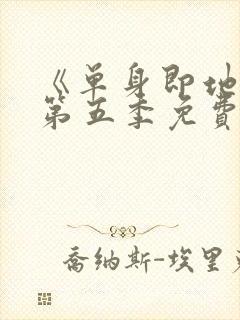 《单身即地
第五季免费
乔纳斯-埃里